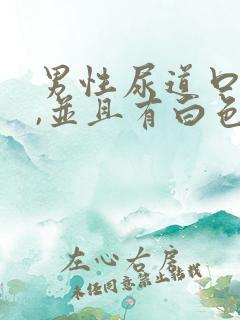 男性尿道口
,并且有白色
左心右房
未经同意禁止转载